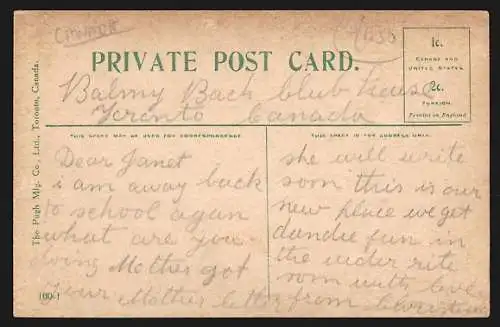 PRIVATE POST CARD.
1c.
CANADA AND
UNITED STATES
2c.
FOREIGN.
Printed in England
Balmy Bach Club House
Toronto Canada
THIS SPACE MAY BE USED FOR CORRESPONDENCE.
THIS SPACE IS FOR ADDRESS ONLY.
The Pugh Mfg. Co., Ltd., Toronto, Canada.
Dear Janet
i am away back
to school agan
what are you
doing Mother got
your Mother letter
100-1
she will write
som this is our
new place we get
dandie fun in
the water rite
som with love
from Christina